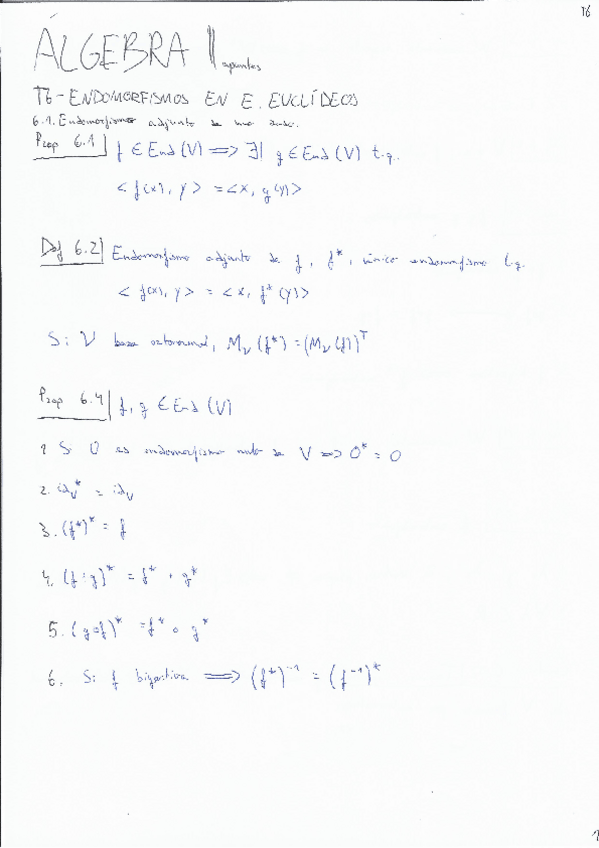 T6
ÁLGEBRA II apuntes
T6-ENDOMORFISMOS EN E. EUCLÍDEOS
6.1. Endomorfismo adjunto de uno dado.
Prop 6.1 f ∈ End (V) ⟹ ∃| g ∈ End (V) t.q.
< f(x), y > = <x, g(y)>
Def 6.2 Endomorfismo adjunto de f, f*, único endomorfismo t.q.
< f(x), y > = < x, f*(y)>
Si V base ortonormal, M_V (f*) = (M_V (f))^T
Prop 6.4 f, g ∈ End (V)
1 Si 0 es endomorfismo nulo de V ⟹ 0* = 0
2. id_V* = id_V
3. (f*)* = f
4. (f+g)* = f* + g*
5. (g∘f)* = f* ∘ g*
6. Si f biyectiva ⟹ (f*)^-1 = (f^-1)*
1